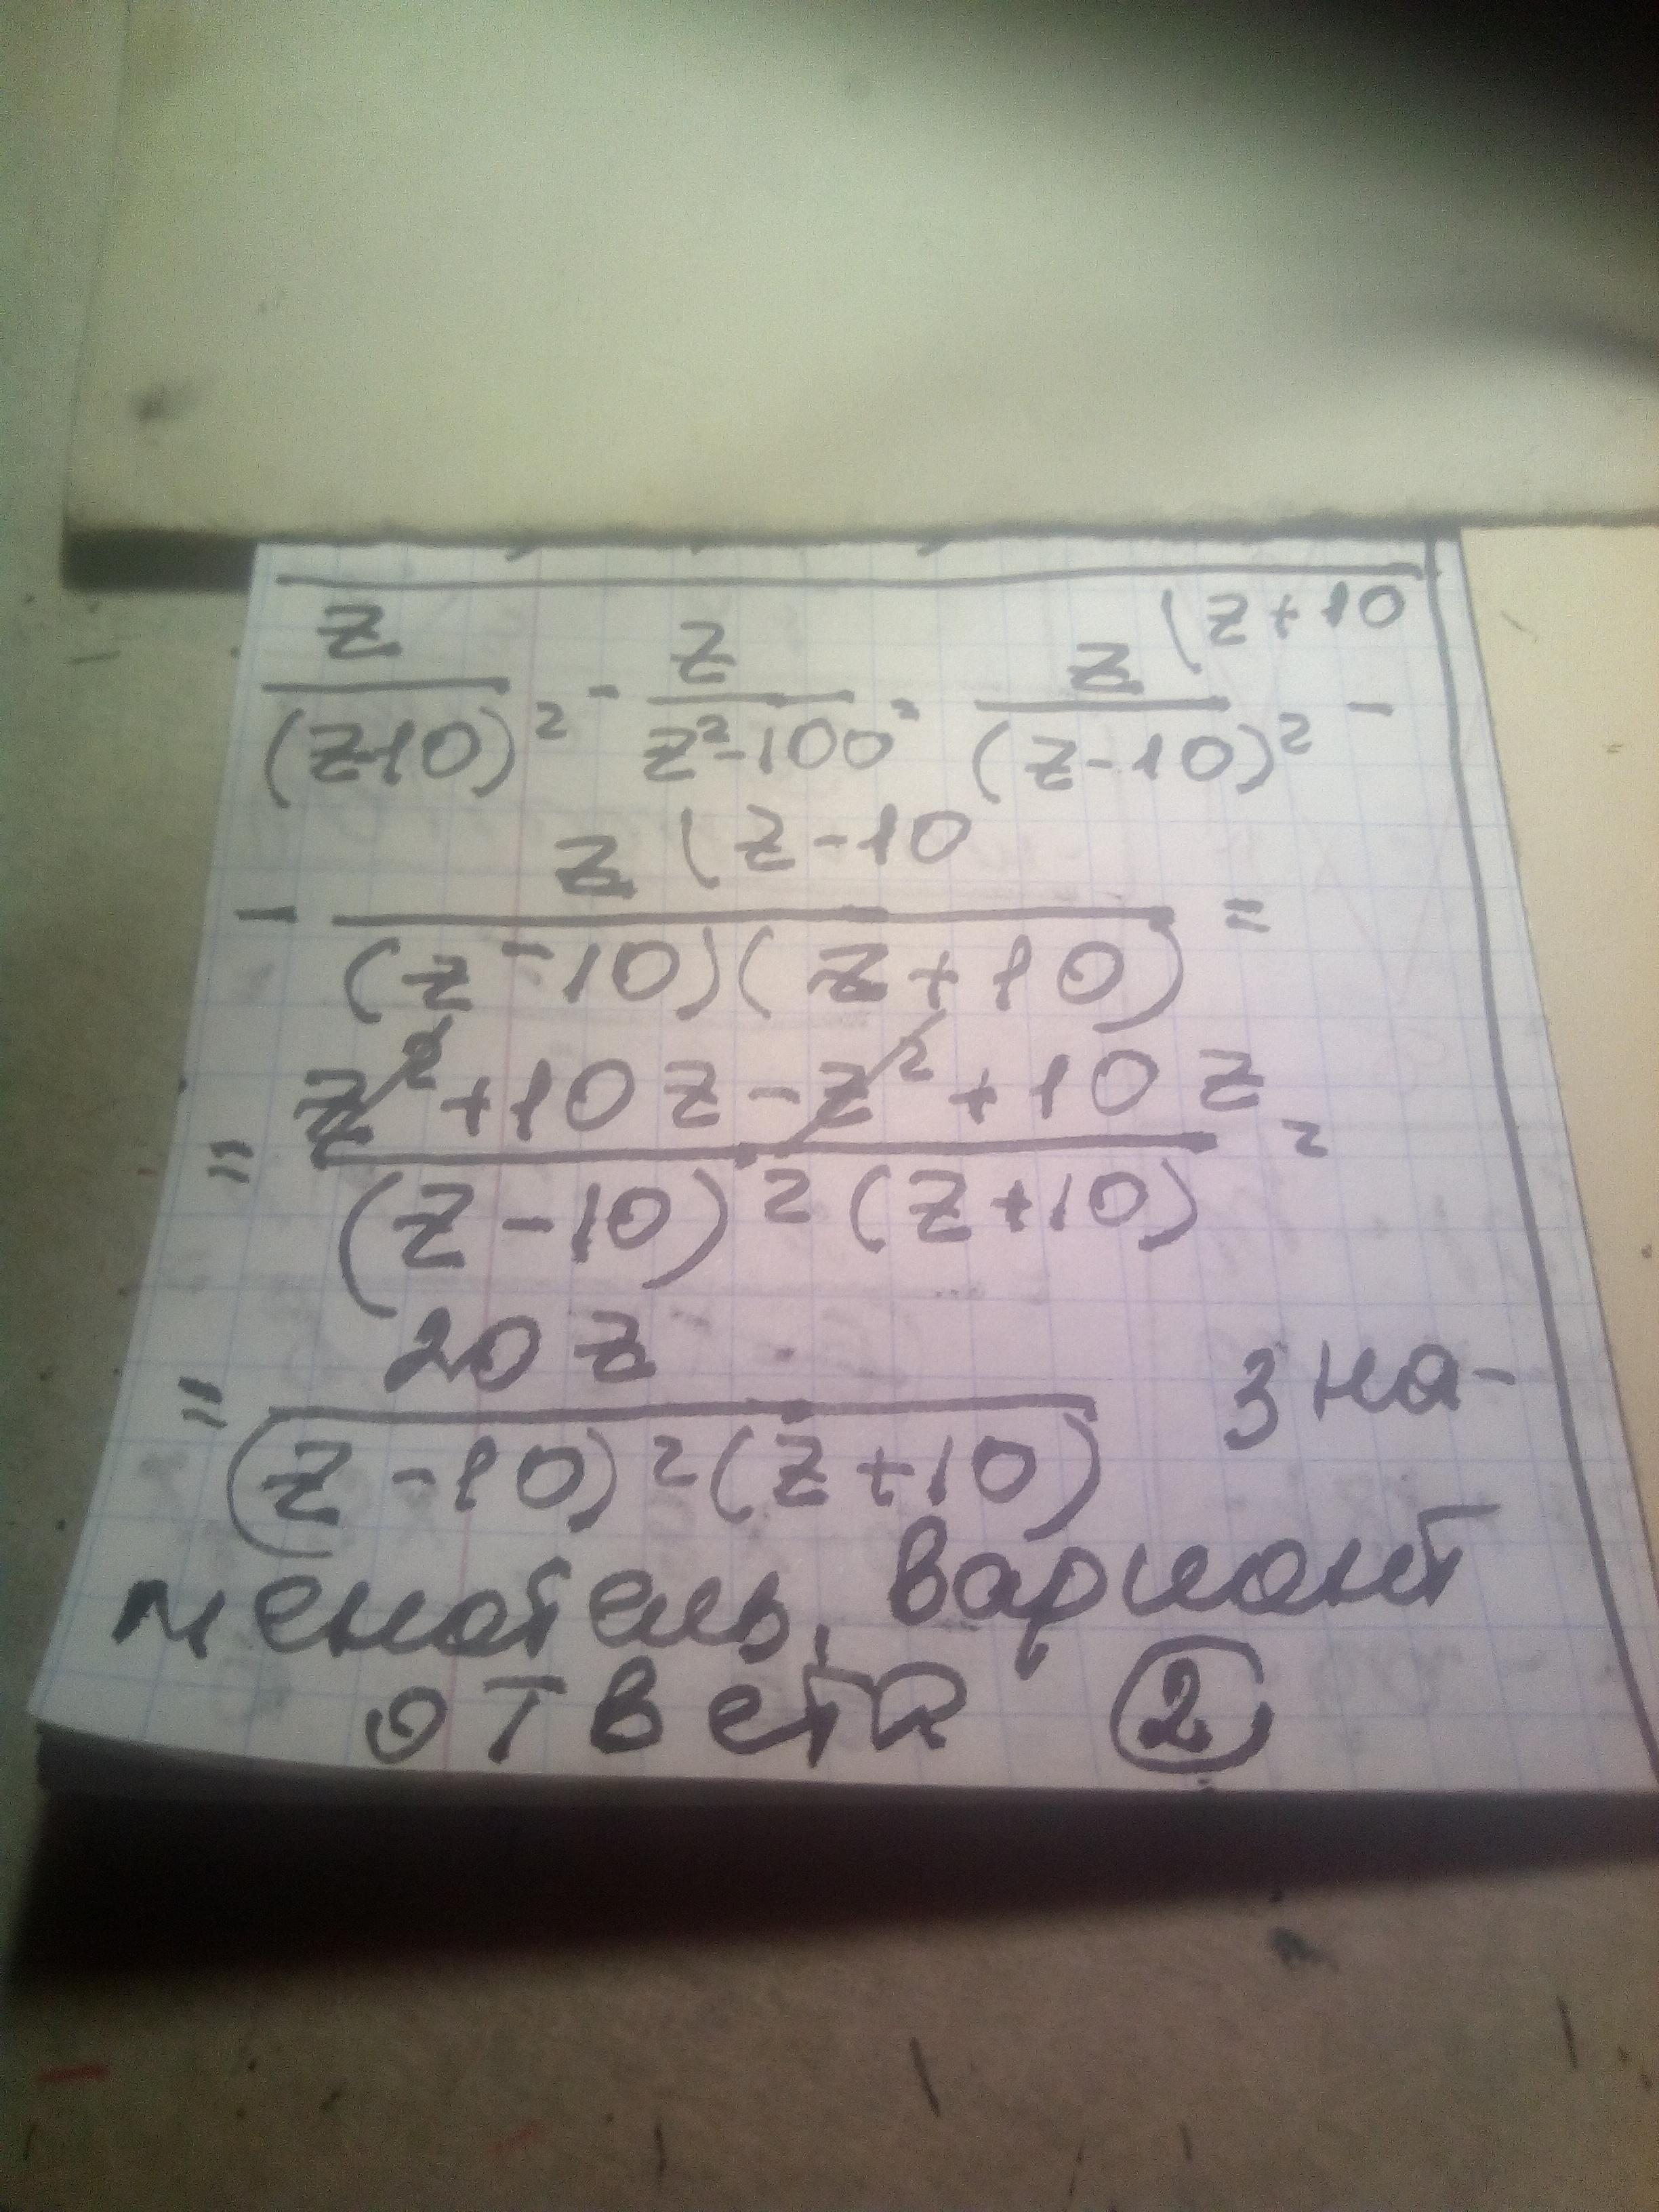 z/(z-10)² - z/(z²-100) = z(z+10/(z-10)² -
- z(z-10/(z-10)(z+10) =
= z²+10z-z²+10z/(z-10)²(z+10) =
= 20z/(z-10)²(z+10) зна-
менатель, вариант
ответа 2